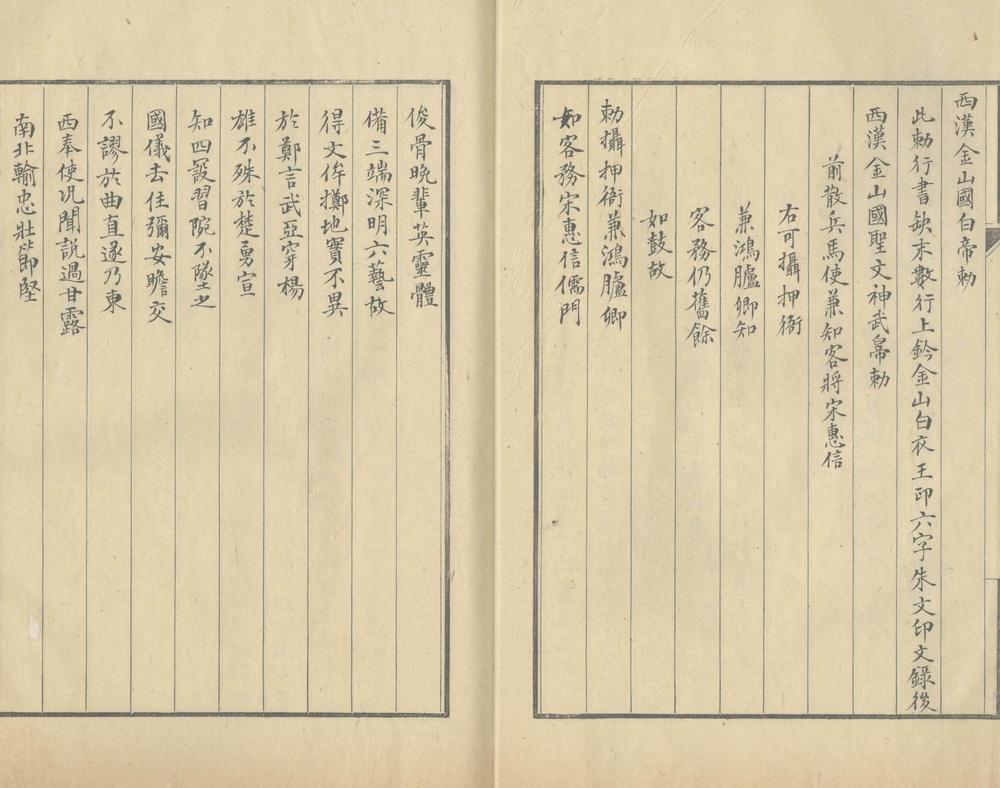 西漢金山國白帝勅
此勅行書缺末數行上鈐金山白衣王印六字朱文印文録後
西漢金山國聖文神武帛勅
前散兵馬使兼知客將宋惠信
右可攝押衙
兼鴻臚卿知
客務仍舊餘
如鼓故
勅攝押衙兼鴻臚卿
知客務宋惠信儒門
俊骨晚輩英靈體
備三端深明六藝故
得文侔擲地實不異
於鄭言武亞穿楊
雄不殊於楚勇宣
知四設習院不墜之
國儀去住彌安贍交
不謬於曲直遂乃東
西奉使況聞説過甘露
南北輸忠壯節堅